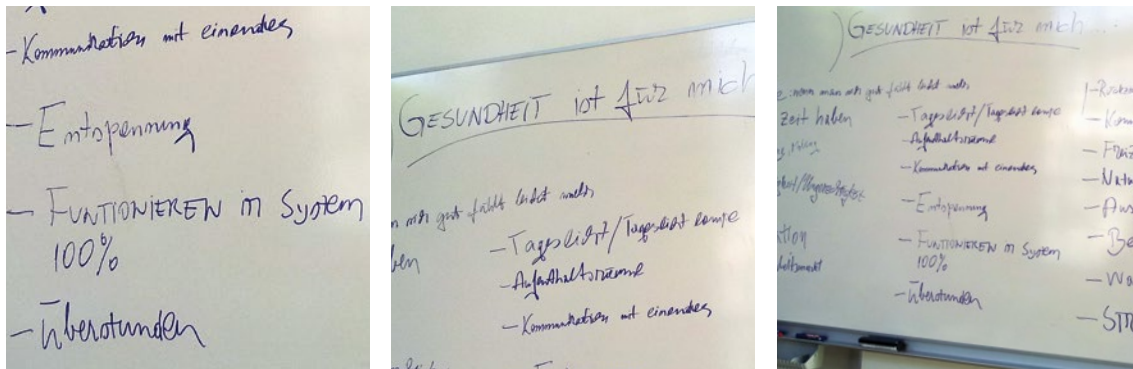 - Kommunikation mit einander
- Entspannung
- FUNTIONIEREN im System
100%
- Überstunden
GESUNDHEIT ist für mich
man sich gut fühlt leidet
ben
- Tageslicht / Tageslicht lampe
- Aufenthaltsräume
- Kommunikation mit einander
GESUNDHEIT ist für mich ...
wenn man sich gut fühlt leidet
zeit haben
- Tageslicht / Tageslicht lampe
- Aufenthaltsräume
- Kommunikation mit einander
- Entspannung
- FUNTIONIEREN im System
100%
- Überstunden
- Kom
- Frei
- Natu
- Aus
- Be
- Wa
- STR